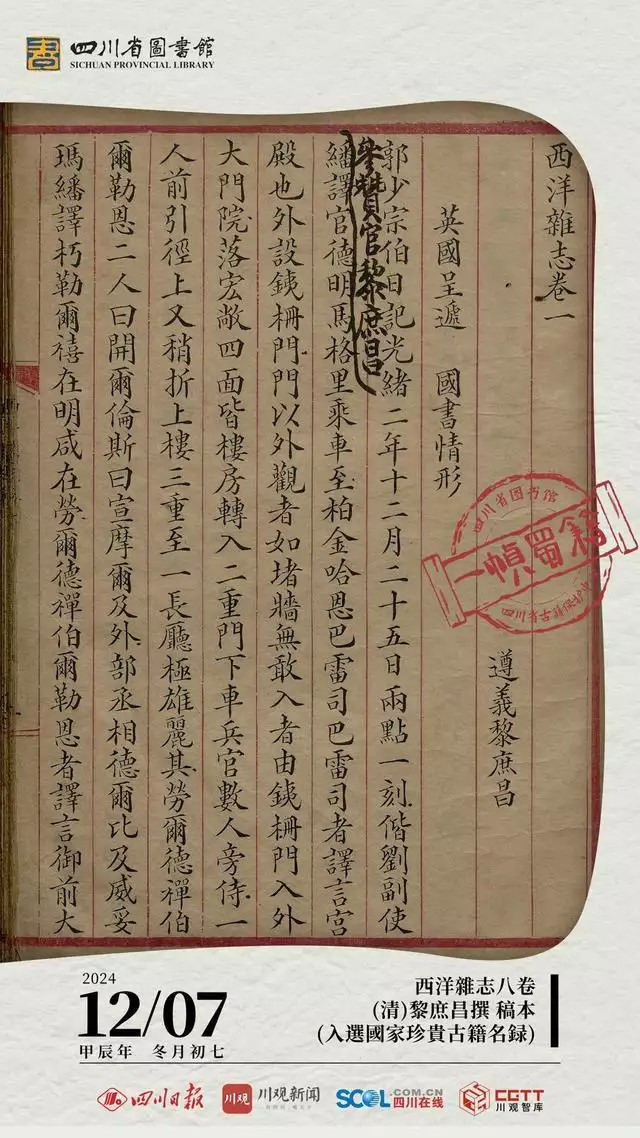 四川省圖書館
SICHUAN PROVINCIAL LIBRARY
西洋雜志卷一
遵義黎庶昌
英國呈遞 國書情形
郭少宗伯日記光緒二年十二月二十五日兩點一刻偕劉副使
參贊官黎庶昌
繙譯官德明馬格里乘車至柏金哈恩巴雷司巴雷司者譯言宮
殿也外設銕柵門門以外觀者如堵牆無敢入者由銕柵門入外
大門院落宏敞四面皆樓房轉入二重門下車兵官數人旁侍一
人前引徑上又稍折上樓三重至一長廳極雄麗其勞爾德禪伯
爾勒恩二人曰開爾倫斯曰宣摩爾及外部丞相德爾比及威妥
瑪繙譯朽勒爾禧在明咸在勞爾德禪伯爾勒恩者譯言御前大
四川省图书馆
一幀蜀籍
四川省古籍保护中
2024
12/07
甲辰年 冬月初七
西洋雜志八卷
(清)黎庶昌撰 稿本
(入選國家珍貴古籍名録)
四川日报
川观
川观新闻
SCOL.COM.CN
四川在线
CGTT
川观智库